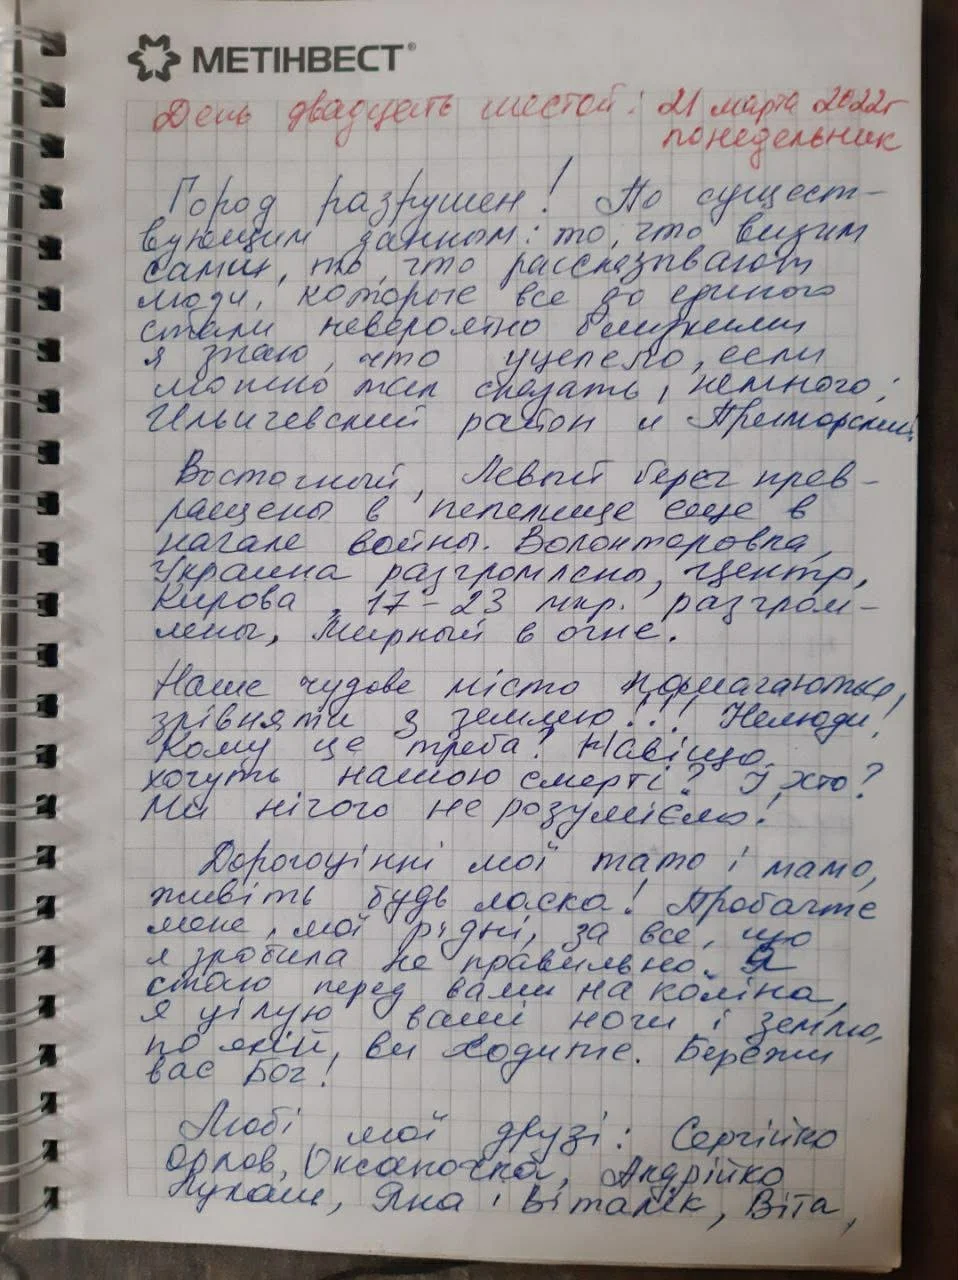 МЕТІНВЕСТ®
День двадцать шестой: 21 марта 2022г
понедельник
Город разрушен! По сущест-
вующим данным: то, что видим
сами, то, что рассказывают
люди, которые все до единого
стали невероятно близкими
я знаю, что уцелело, если
можно так сказать, немного:
Ильичевский район и Приморский
Восточный, Левый берег прев-
ращены в пепелище еще в
начале войны. Волонтеровка,
Украина разгромлены, Центр,
Кирова, 17-23 мкр. разгром-
лены, Мирный в огне.
Наше чудове місто намагаються
зрівняти з землею!!! Нелюди!
Кому це треба? Навіщо
хочуть нашою смерті? І хто?
Ми нічого не розуміємо!
Дорогоцінні мої тато і мамо,
живіть будь ласка! Пробачте
мене, мої рідні, за все, що
я зробила не правильно. Я
стаю перед вами на коліна,
я цілую ваші ноги і землю,
по якій, ви ходите. Бережи
вас Бог!
Любі мої друзі: Сергійко
Орлов, Оксаночка, Андрійко
Лукаш, Яна і Віталік, Віта,